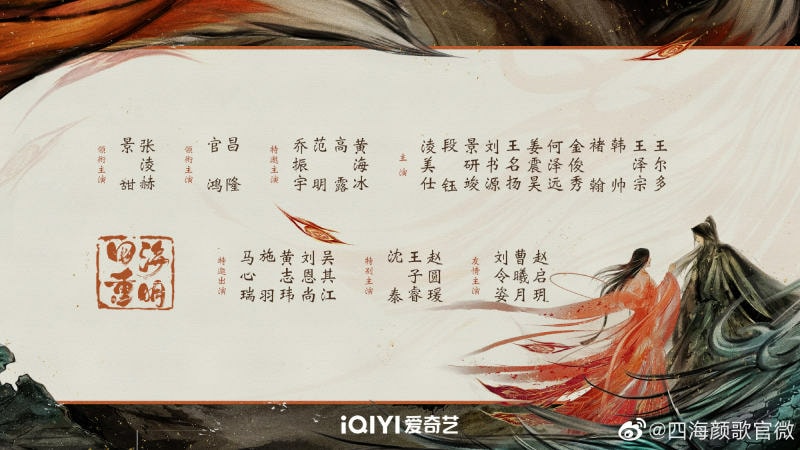 领衔主演
景甜
张凌赫
领衔主演
官鸿
昌隆
特邀主演
乔振宇
范明
高露
黄海冰
主演
凌美仕
段钰
景研竣
刘书源
王名扬
姜震昊
何泽远
金俊秀
褚翰
韩帅
王泽宗
王尔多
四海重明
特邀出演
马心瑞
施羽
黄志玮
刘恩尚
吴其江
特别主演
沈泰
王子睿
赵圆瑗
友情主演
刘令姿
曹曦月
赵启玥
iQIYI 爱奇艺
@四海颜歌官微